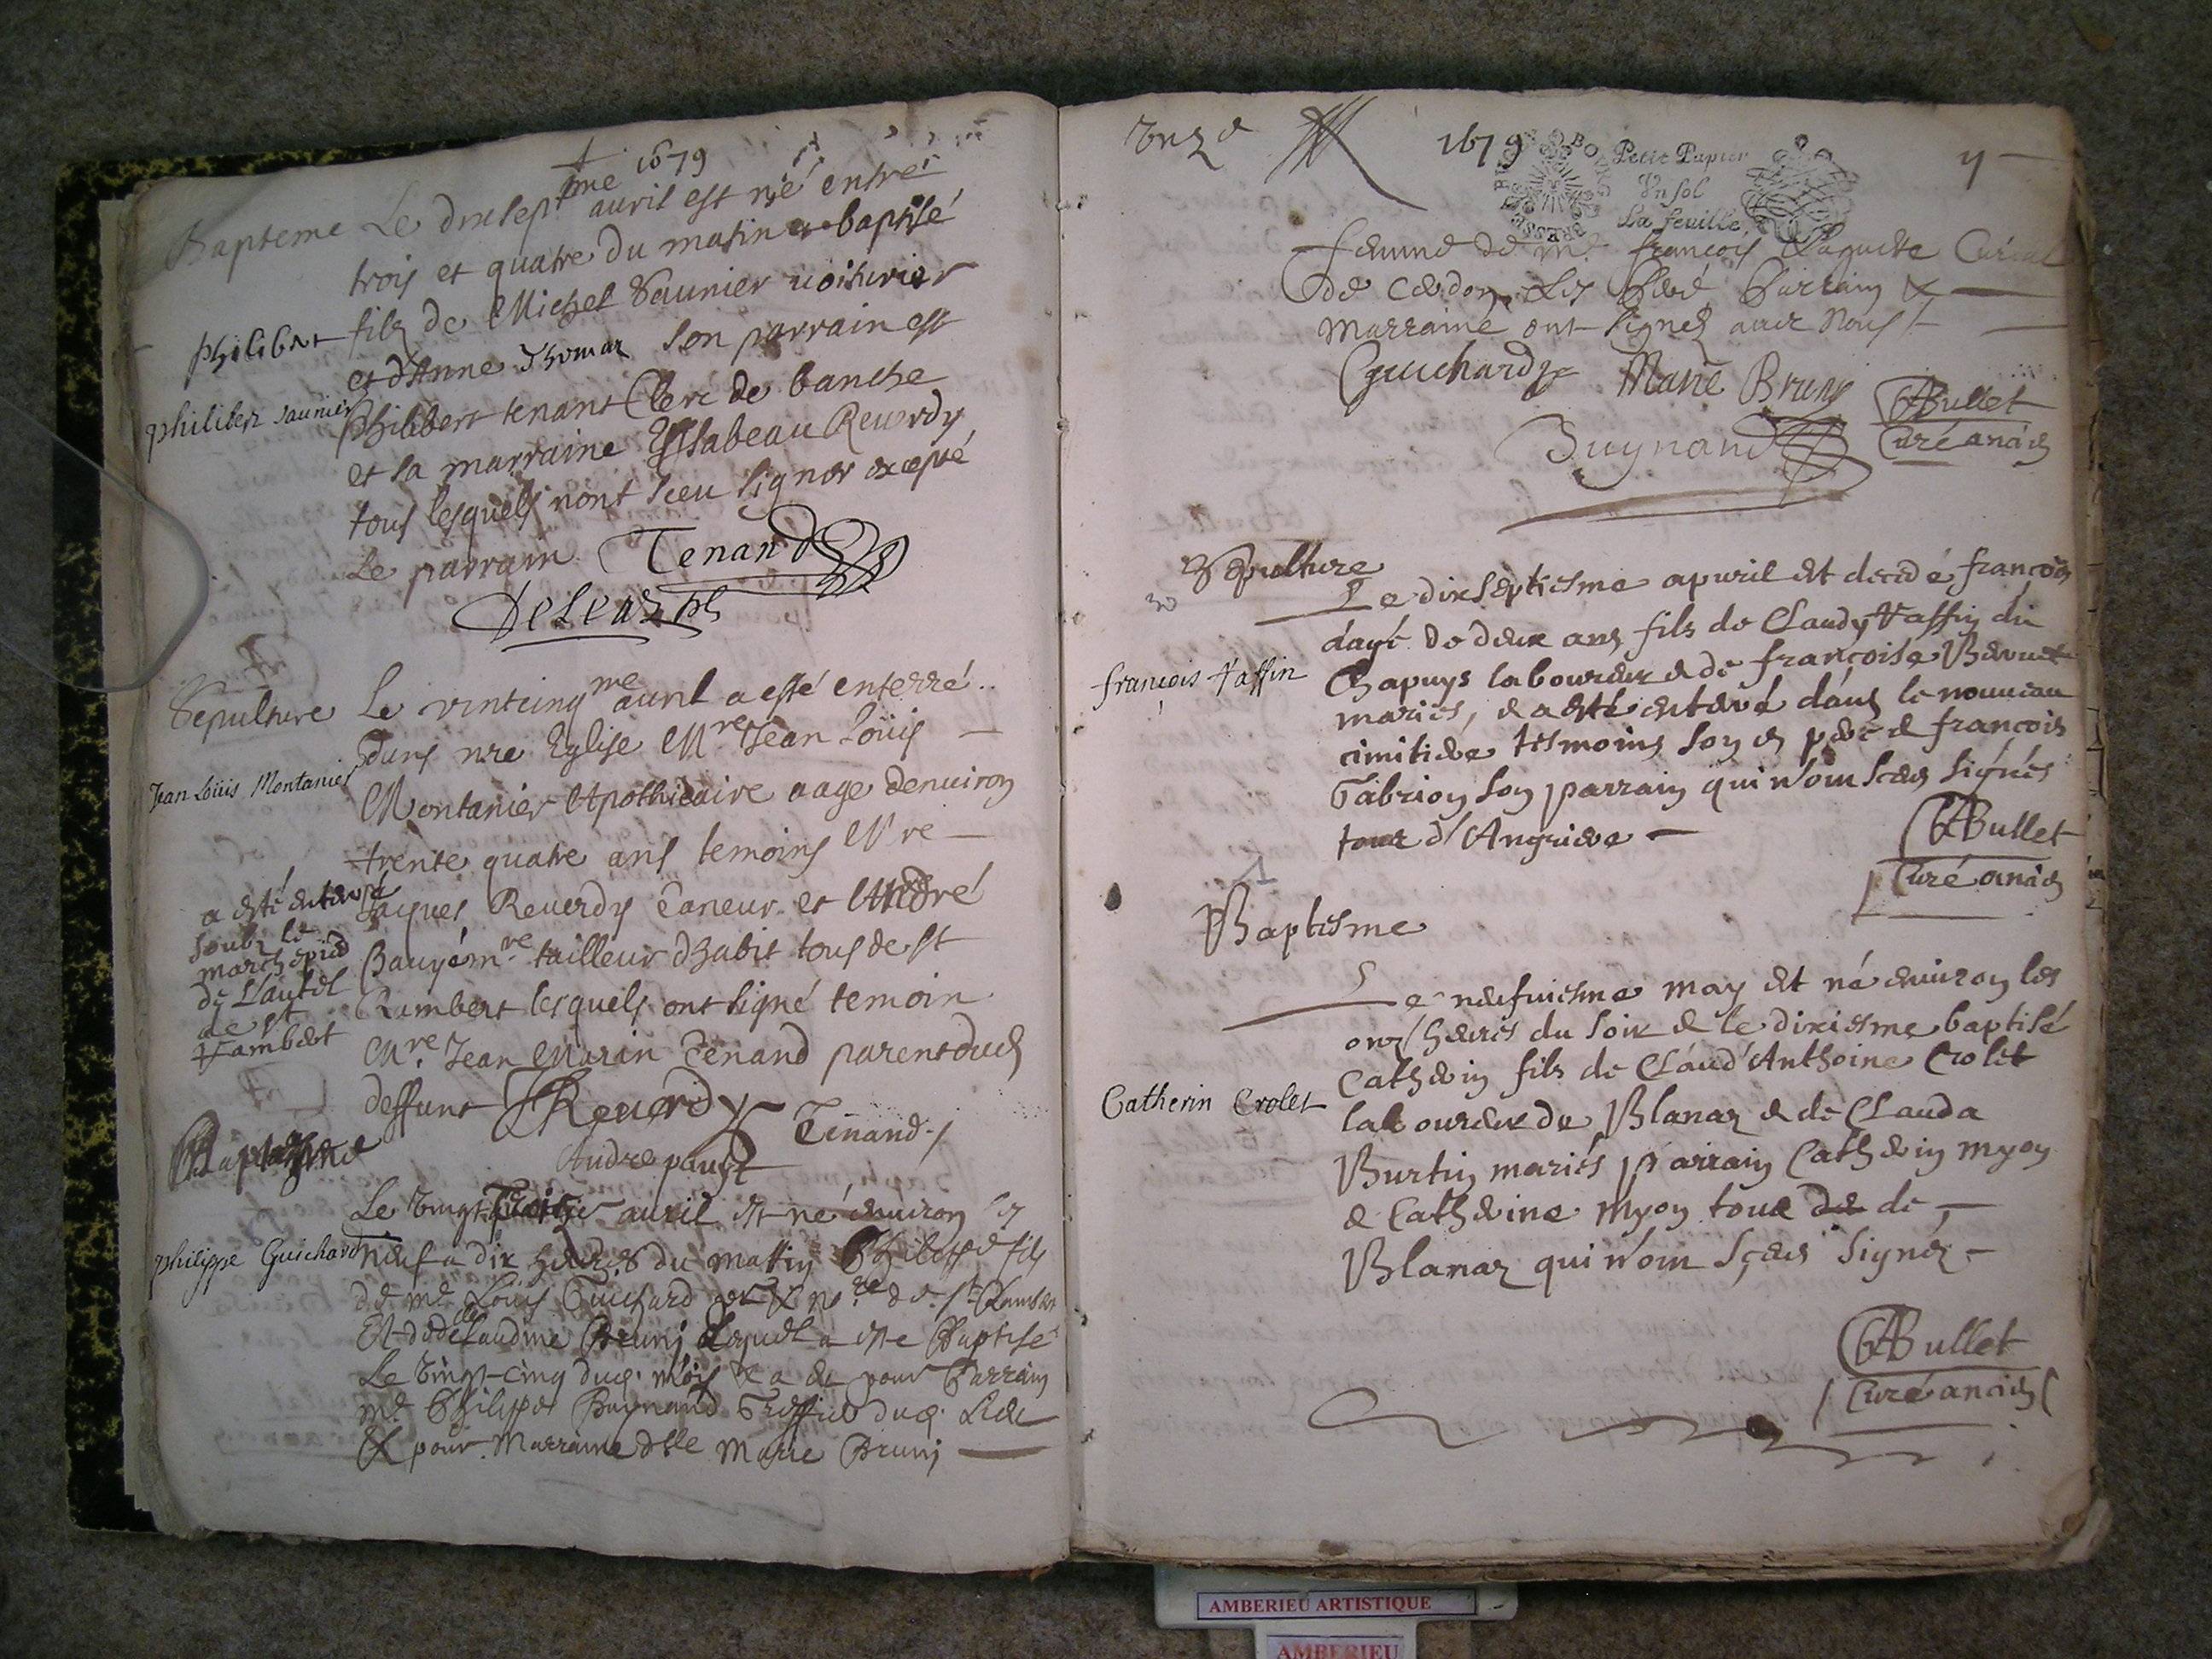 1679
Bapteme Le dixsept.me auril est né entre
trois et quatre du matin et baptisé
philibert fils de Michel Saunier uoiturier
et d'Anne Thomaz son parrain est
philiber saunier
Philibert tenant Clerc de banche
et sa marraine Ysabeau Reuerdy
tous lesquels n'ont sceu signer excepté
Le parrain Tenand
Sepulture Le vintcinq.me auril a esté enterré
Dans nre Eglise Mre Jean Loüis
Jean Loüis Montanier
Montanier Apothicaire aagé denuiron
trente quatre ans temoins Mre
Jacques Reuerdy Taneur et André
Bauyé mre tailleur dhabit tous de st
Rambert lesquels ont signé temoin
Mre Jean Marin Tenand parent dud
deffunt JReuerdy Tenand
a esté enterré
soubz le
marchepied
de L'autel
de st
Rambert
Baptesme
Le vingt auril est né enuiron les
philippe Guichard
neuf a dix heures du mattin Philippe fils
de me Loüis Guichard et nore de st Rambert
Claudine Bruni Lequel a este Baptisé
Le vingt-cinq dud. mois & a eu pour Parrain
me Philippe Buynand Greffier dud. Lieu
& pour Marraine dlle Marie Bruni
Onze 1679 11
BOURG BRESSE
Petit Papier
Vn sol
La feuille
femme de me françois Curial
de Cerdon Les Parrain &
Marraine ont signez auec Nous
Guichard Marie Bruny
Buynand
Bullet
Curé ancien
Sepulture
Le dixseptiesme apuril est decedé françois
dagé de deux ans fils de Claudy Vaffin du
françois Vaffin
Chapuys laboureur & de françoise
mariés, & a esté enterré dans le nouueau
cimitiere tesmoins son pere & françois
Fabrion son parrain qui n'ont sceu signés
tous d'Angrieve
Bullet
Curé ancien
Baptesme
Le neufuiesme may est né enuiron les
onz heures du soir & le dixiesme baptisé
Catherin fils de Claud' Anthoine Crolet
Catherin Crolet
laboureur de Blanaz & de Clauda
Burtin mariés parrain Catherin Myon
& Catherine Myon tous de de
Blanaz qui n'ont sceu signez
Bullet
Curé ancien
AMBERIEU ARTISTIQUE
AMBERIEU